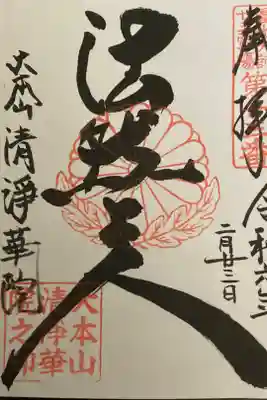 奉拝 令和六年
二月廿三日
法然上人
大本山 清浄華院
大本山
清浄華
院之印